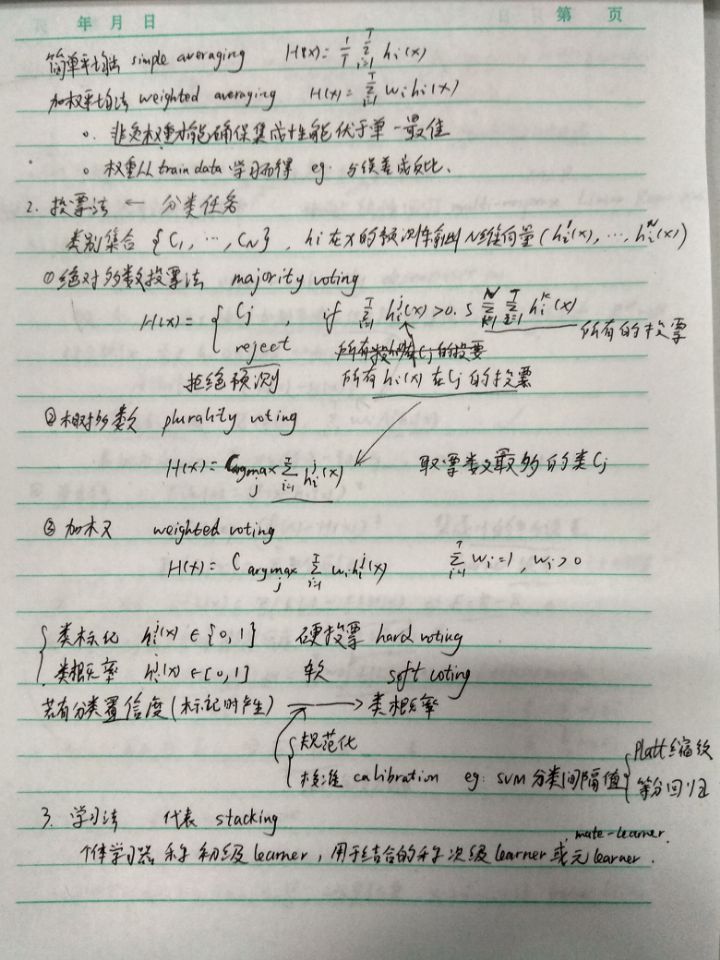 年 月 日 第 页
简单平均法 simple averaging H(x)= 1/T Σ_{i=1}^{T} hi(x)
加权平均法 weighted averaging H(x)= Σ_{i=1}^{T} wi hi(x)
o. 非负权重才能确保集成性能优于单一最佳
o 权重从train data 学习而得 eg. 与误差成反比.
2. 投票法 ← 分类任务
类别集合 {C1, ..., CN}, hi 在x的预测作输出N维向量 (hi^1(x), ..., hi^N(x))
① 绝对多数投票法 majority voting
H(x)= { Cj , if Σ_{i=1}^{T} hi^j(x) > 0.5 Σ_{k=1}^{N} Σ_{i=1}^{T} hi^k(x) 所有的投票
reject
拒绝预测 所有hi(x)在Cj的投票
② 相对多数 plurality voting
H(x)= C argmax_j Σ_{i=1}^{T} hi^j(x) 取票数最多的类Cj
③ 加权 weighted voting
H(x)= C argmax_j Σ_{i=1}^{T} wi hi^j(x) Σ_{i=1}^{T} wi=1, wi>0
{ 类标记 hi^j(x) ∈ {0,1} 硬投票 hard voting
类概率 hi^j(x) ∈ [0,1] 软 soft voting
若有分类置信度(标记时产生) → 类概率
{ 规范化
校准 calibration eg: SVM 分类间隔值 { Platt缩放
等分回归
3. 学习法 代表 stacking
个体学习器 称 初级 learner, 用于结合的称 次级 learner 或 元 learner.
mate-learner